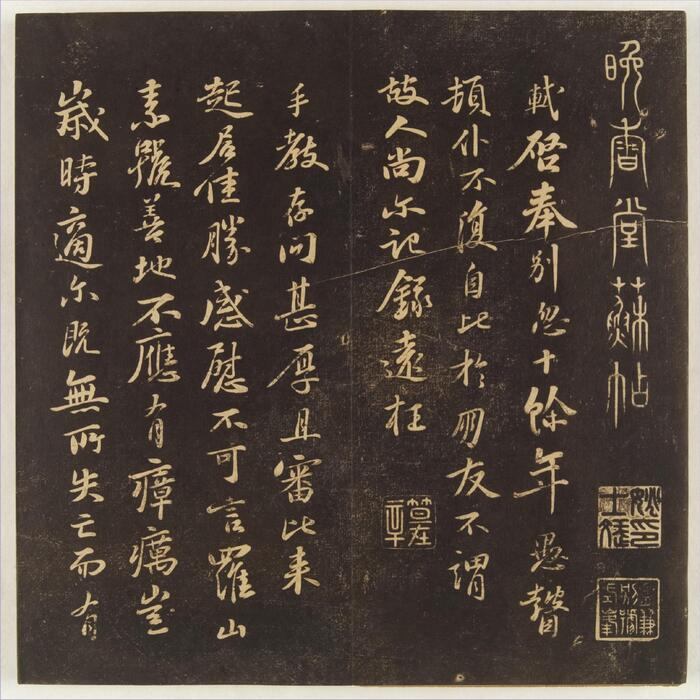 晚香堂蘇帖
軾啟奉別忽十餘年愚瞽
頓仆不復自比於朋友不謂
故人尚尔記錄遠枉
笪在辛
手教存問甚厚且審比来
起居佳勝感慰不可言羅山
素號善地不應有瘴癘豈
歲時適尔既無所失亡而有